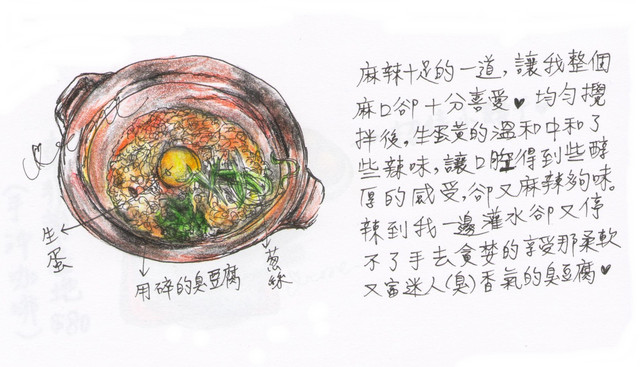 麻辣十足的一道,讓我整個
麻口卻十分喜愛♥均勻攪
拌後,生蛋黃的溫和中和了
些辣味,讓口腔得到些醇
厚的感受,卻又麻辣夠味。
辣到我一邊灌水卻又停
不了手去貪婪的享受那柔軟
又富迷人(臭)香氣的臭豆腐♥
生蛋
用碎的臭豆腐
蔥絲